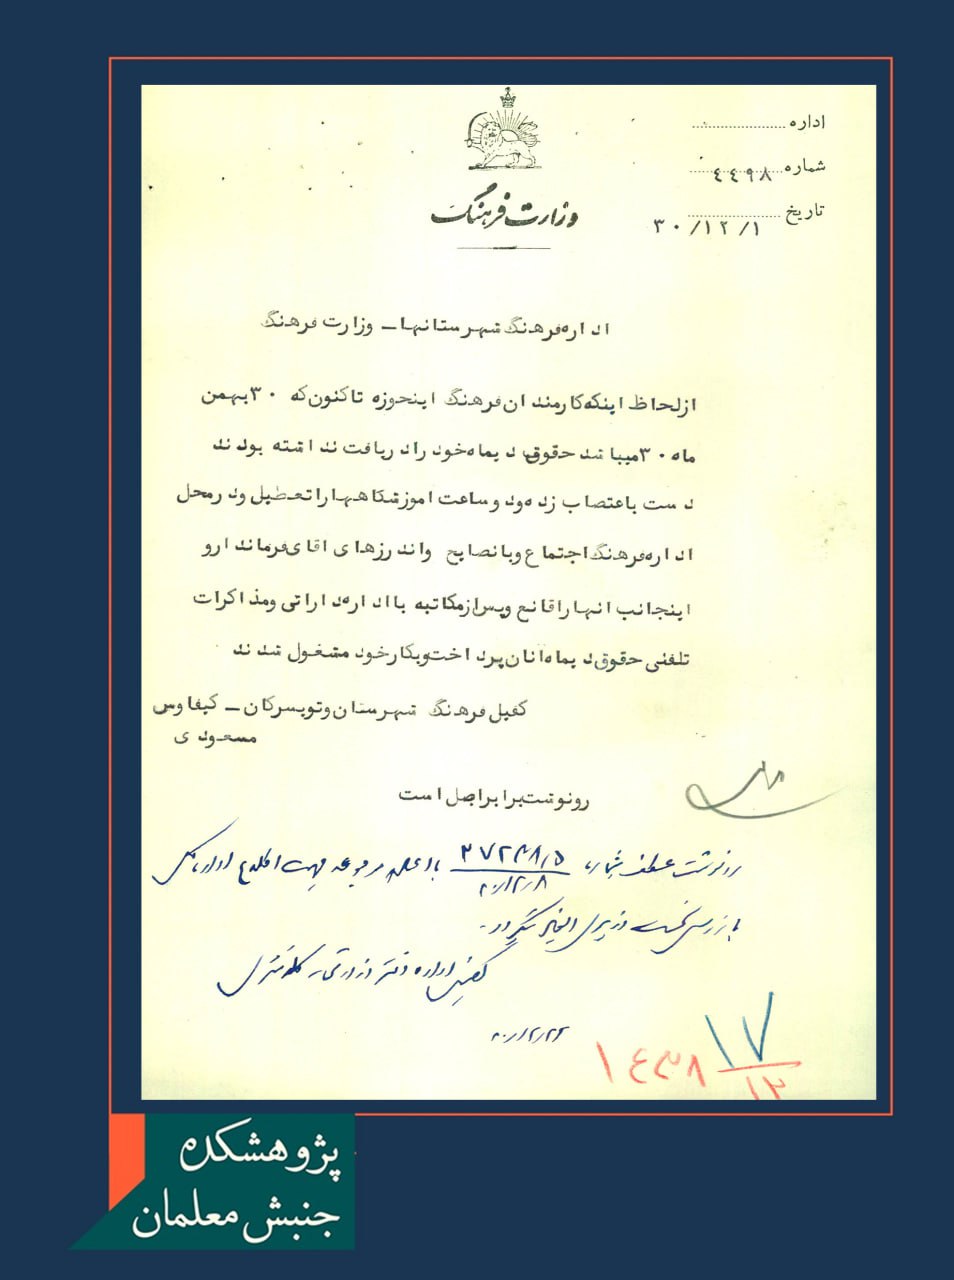 اداره
شماره ٤٤٩٨
تاریخ ٣٠/١٢/١
وزارت فرهنگ
اداره فرهنگ شهرستانها – وزارت فرهنگ
از لحاظ اینکه کارمندان فرهنگ اینحوزه تاکنون که ٣٠ بهمن
ماه ٣٠ میباشد حقوق دیماه خود را دریافت نداشته بودند
دست باعتصاب زده ودو ساعت اموزشگاهها را تعطیل ودر محل
اداره فرهنگ اجتماع وبا نصایح واندرزهای اقای فرماندار و
اینجانب انها را قانع وپس از مکاتبه با اداره دارائی ومذاکرات
تلفنی حقوق دیماه انان پرداخت وبکار خود مشغول شدند
کفیل فرهنگ شهرستان وتویسرکان – کیفاوس
مسعودی
رونوشت برابر اصل است
رونوشت عطف بشماره ٢٧٢٣٨/٥ جهت اطلاع اداره کل
٣٠/١٢/٨
بازرسی نخست وزیری
کفیل اداره دفتر وزارتی
٣٠/١٢/٢٢
١٧
١٤٣٨ ١٢
پژوهشکده
جنبش معلمان